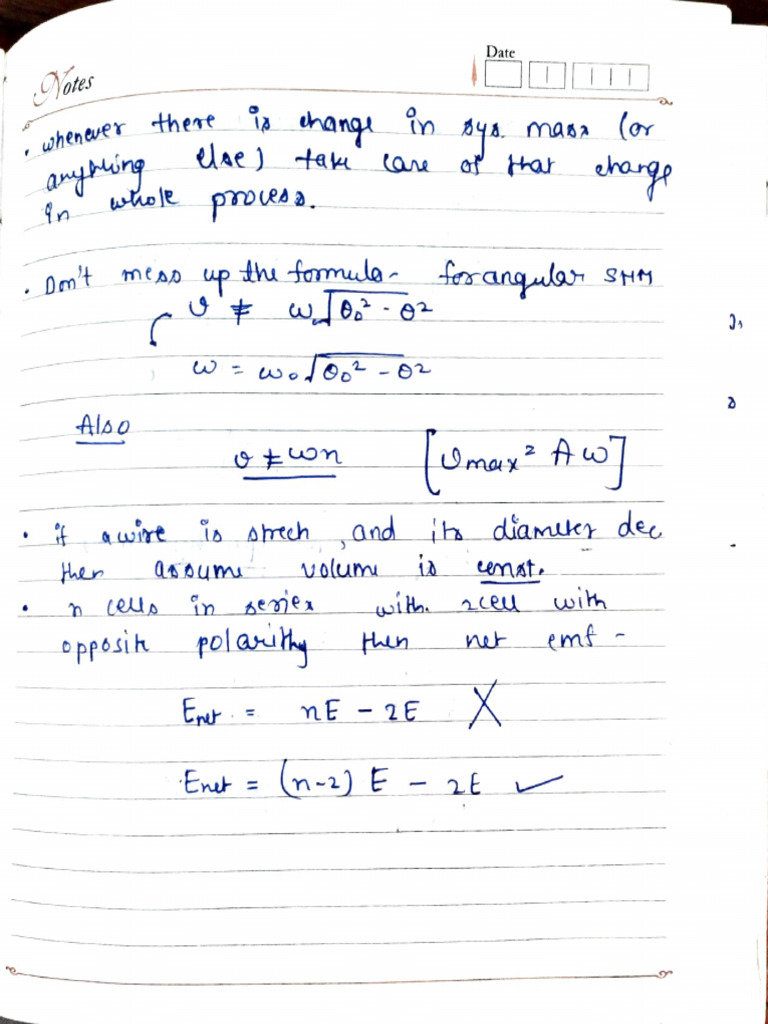 Notes
Date
. whenever there is change in sys. mass (or
anything else) take care of that change
in whole process.
. Don't mess up the formula - for angular SHM
v ≠ ω√θ₀² - θ²
ω = ω₀√θ₀² - θ²
Also
v ≠ ωn [vmax² Aω]
• if a wire is strech, and its diameter dec
then assume volume is const.
• n cells in series with. 2cell with
opposite polarithy then net emf -
Enet = nE - 2E X
Enet = (n-2) E - 2E ✓